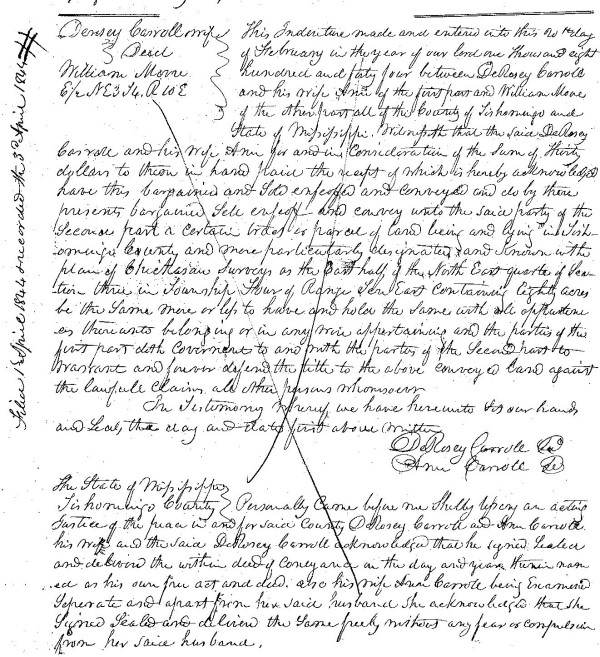 Filed 1st April 1844 & recorded the 3d April 1844
Derosey Carroll & wife
Deed
William Moore
E/2 NE 3 T4. R 10 E
This Indenture made and entered into this 20th day
of February in the year of our lord one thousand eight
hundred and forty four between DeRosey Carroll
and his wife Ann of the first part and William Moore
of the other part all of the County of Tishomingo and
State of Mississippi. Witnesseth that the said DeRosey
Carroll and his wife Ann for and in Consideration of the Sum of thirty
dollars to them in hand paid the receipt of which is hereby acknowledged
have this bargained and Sold enfeoffed and conveyed and do by these
presents bargained Sell enfeoff and convey unto the said party of the
Second part a certain tract or parcel of land being and lying in Tish-
omingo County and more particularly designated and Known in the
plan of Chickasaw Surveys as the East half of the North East quarter of Sec-
tion three in Township Four of Range Ten East Containing Eighty acres
be the Same more or less to have and hold the same with all appurtenan
es thereunto belonging or in any wise appertaining and the parties of the
first part doth Covenant to and with the parties of the Second part to
warrant and forever defend the title to the above conveyed land against
the lawfull claims all other persons whomsoever
In Testimony whereof we have hereunto Set our hands
and Seals the day and date first above written
DeRosey Carroll
Ann Carroll
The State of Mississippi
Tishomingo County } Personally Came before me Shelby an acting
Justice of the peace in and for said County DeRosey Carroll and Ann Carroll
his wife and the said DeRosey Carroll acknowledged that he signed Sealed
and delivered the within deed of Conveyance on the day and year therein nam
ed as his own free act and deed. also his wife Ann Carroll being Examined
Seperate and apart from her said husband She acknowledged that she
Signed Sealed and deliverd the Same freely without any fear or compulsion
from her said husband.